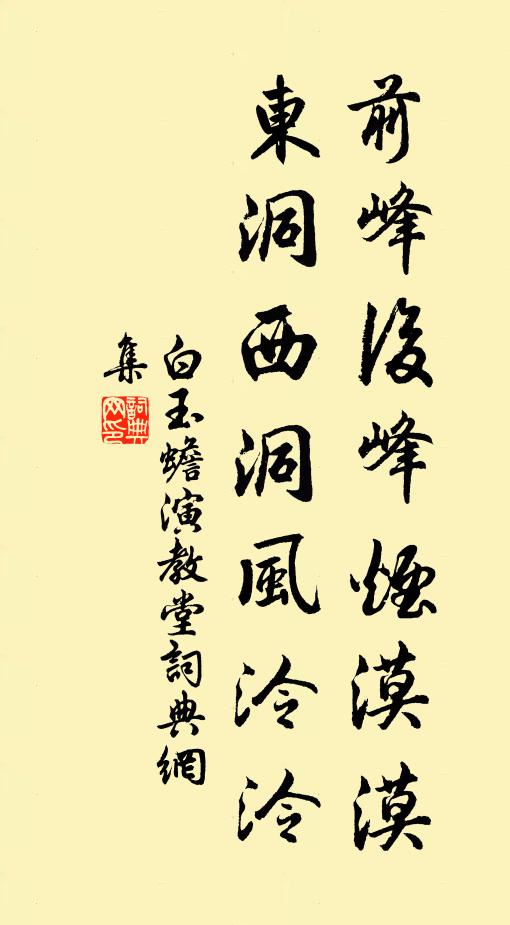 前峰後峰煙漠漠
東洞西洞風泠泠
白玉蟾演教堂詞典網
集
詞典網印